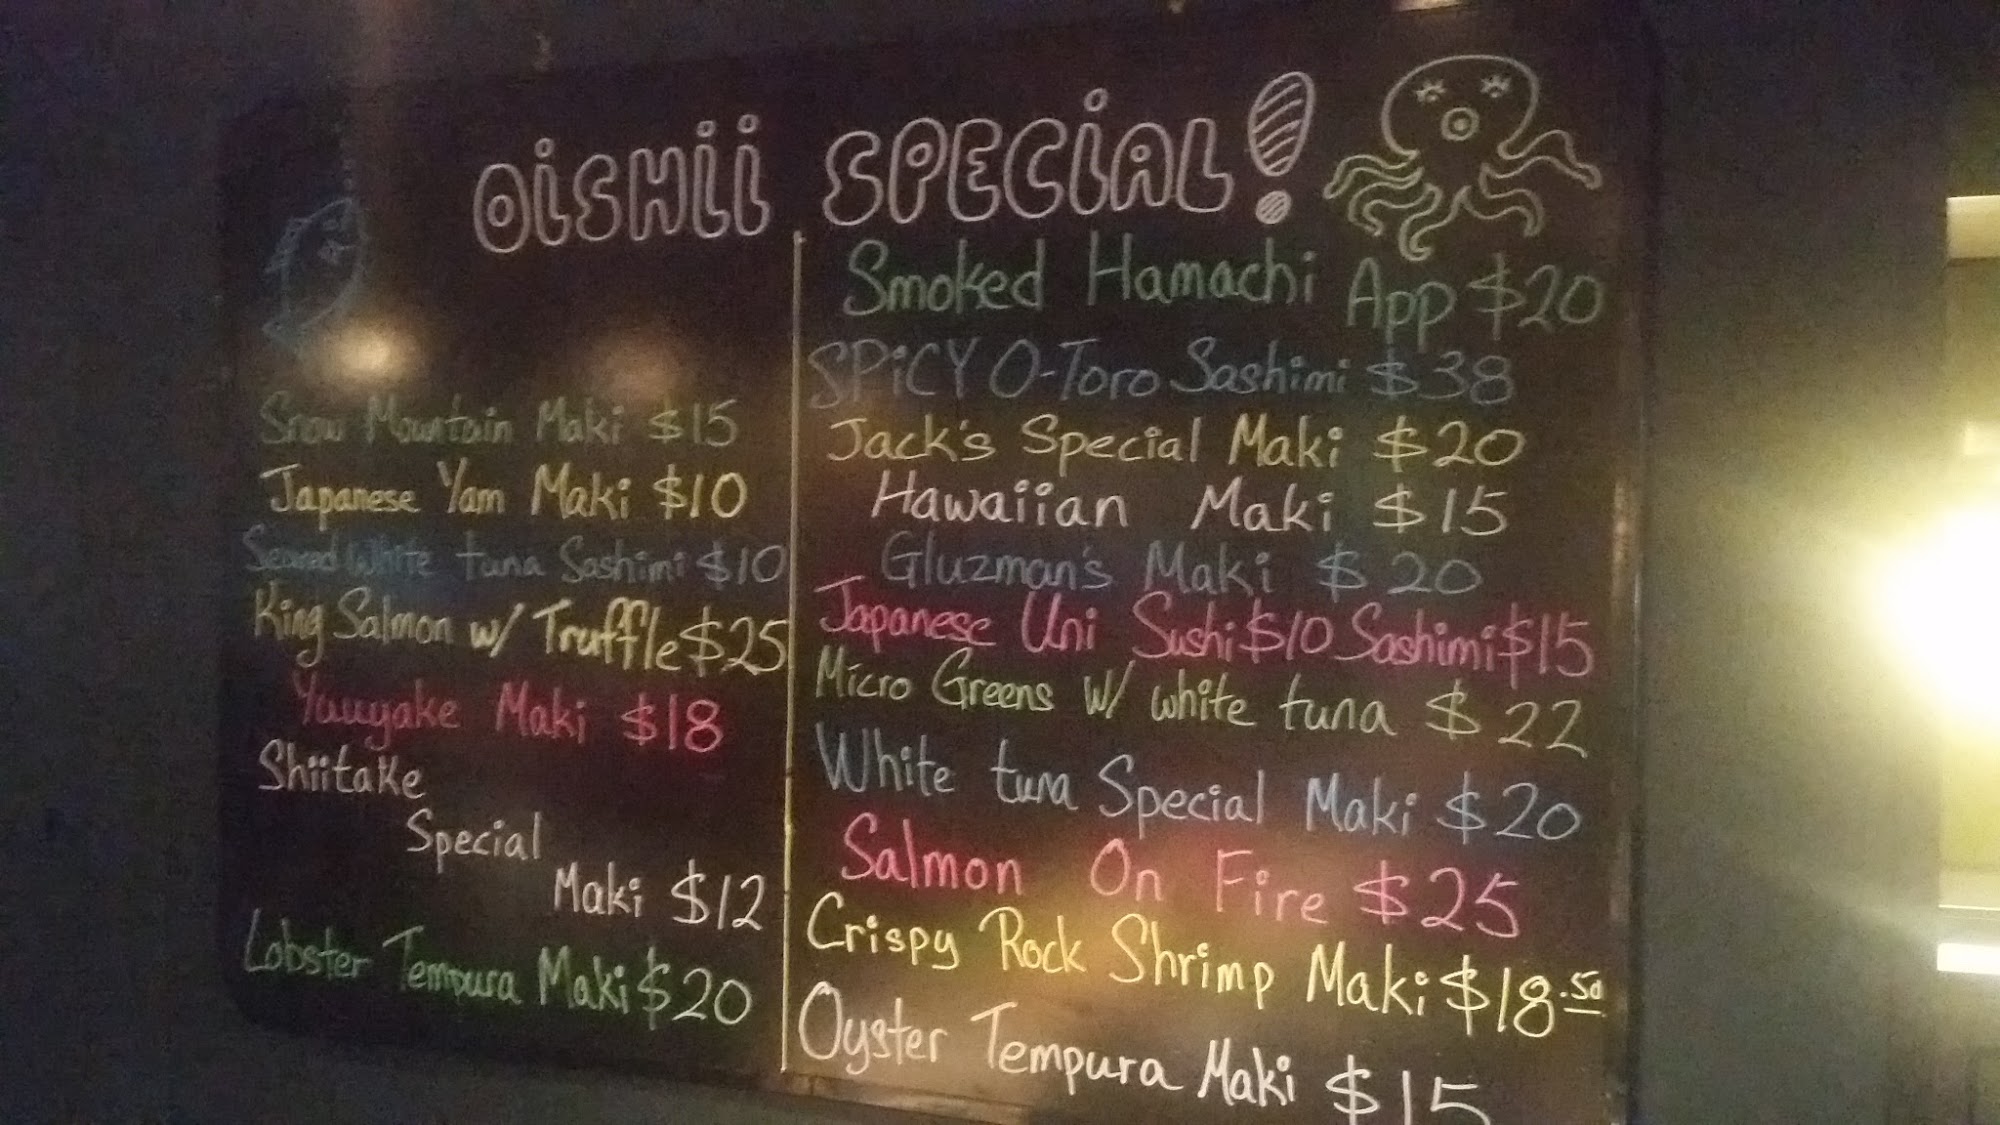 OiSHii SPECiAL!
Snow Mountain Maki $15
Japanese Yam Maki $10
Seared White tuna Sashimi $10
King Salmon w/ Truffle $25
Yuuyake Maki $18
Shiitake
Special
Maki $12
Lobster Tempura Maki $20
Smoked Hamachi App $20
SPiCY O-Toro Sashimi $38
Jack's Special Maki $20
Hawaiian Maki $15
Gluzman's Maki $20
Japanese Uni Sushi $10 Sashimi $15
Micro Greens w/ white tuna $22
White tuna Special Maki $20
Salmon On Fire $25
Crispy Rock Shrimp Maki $18.50
Oyster Tempura Maki $15